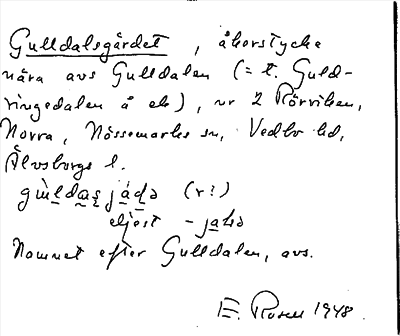 Gulldalsgärdet, åkerstycke
nära avs Gulldalen (= t. Guld-
ringedalen å ek), ur 2 Rörviken,
Norra, Nössemarks sn, Vedbo hd,
Älvsborgs l.
(r?)
eljest
Namnet efter Gulldalen, avs.
E. Rosell 1948